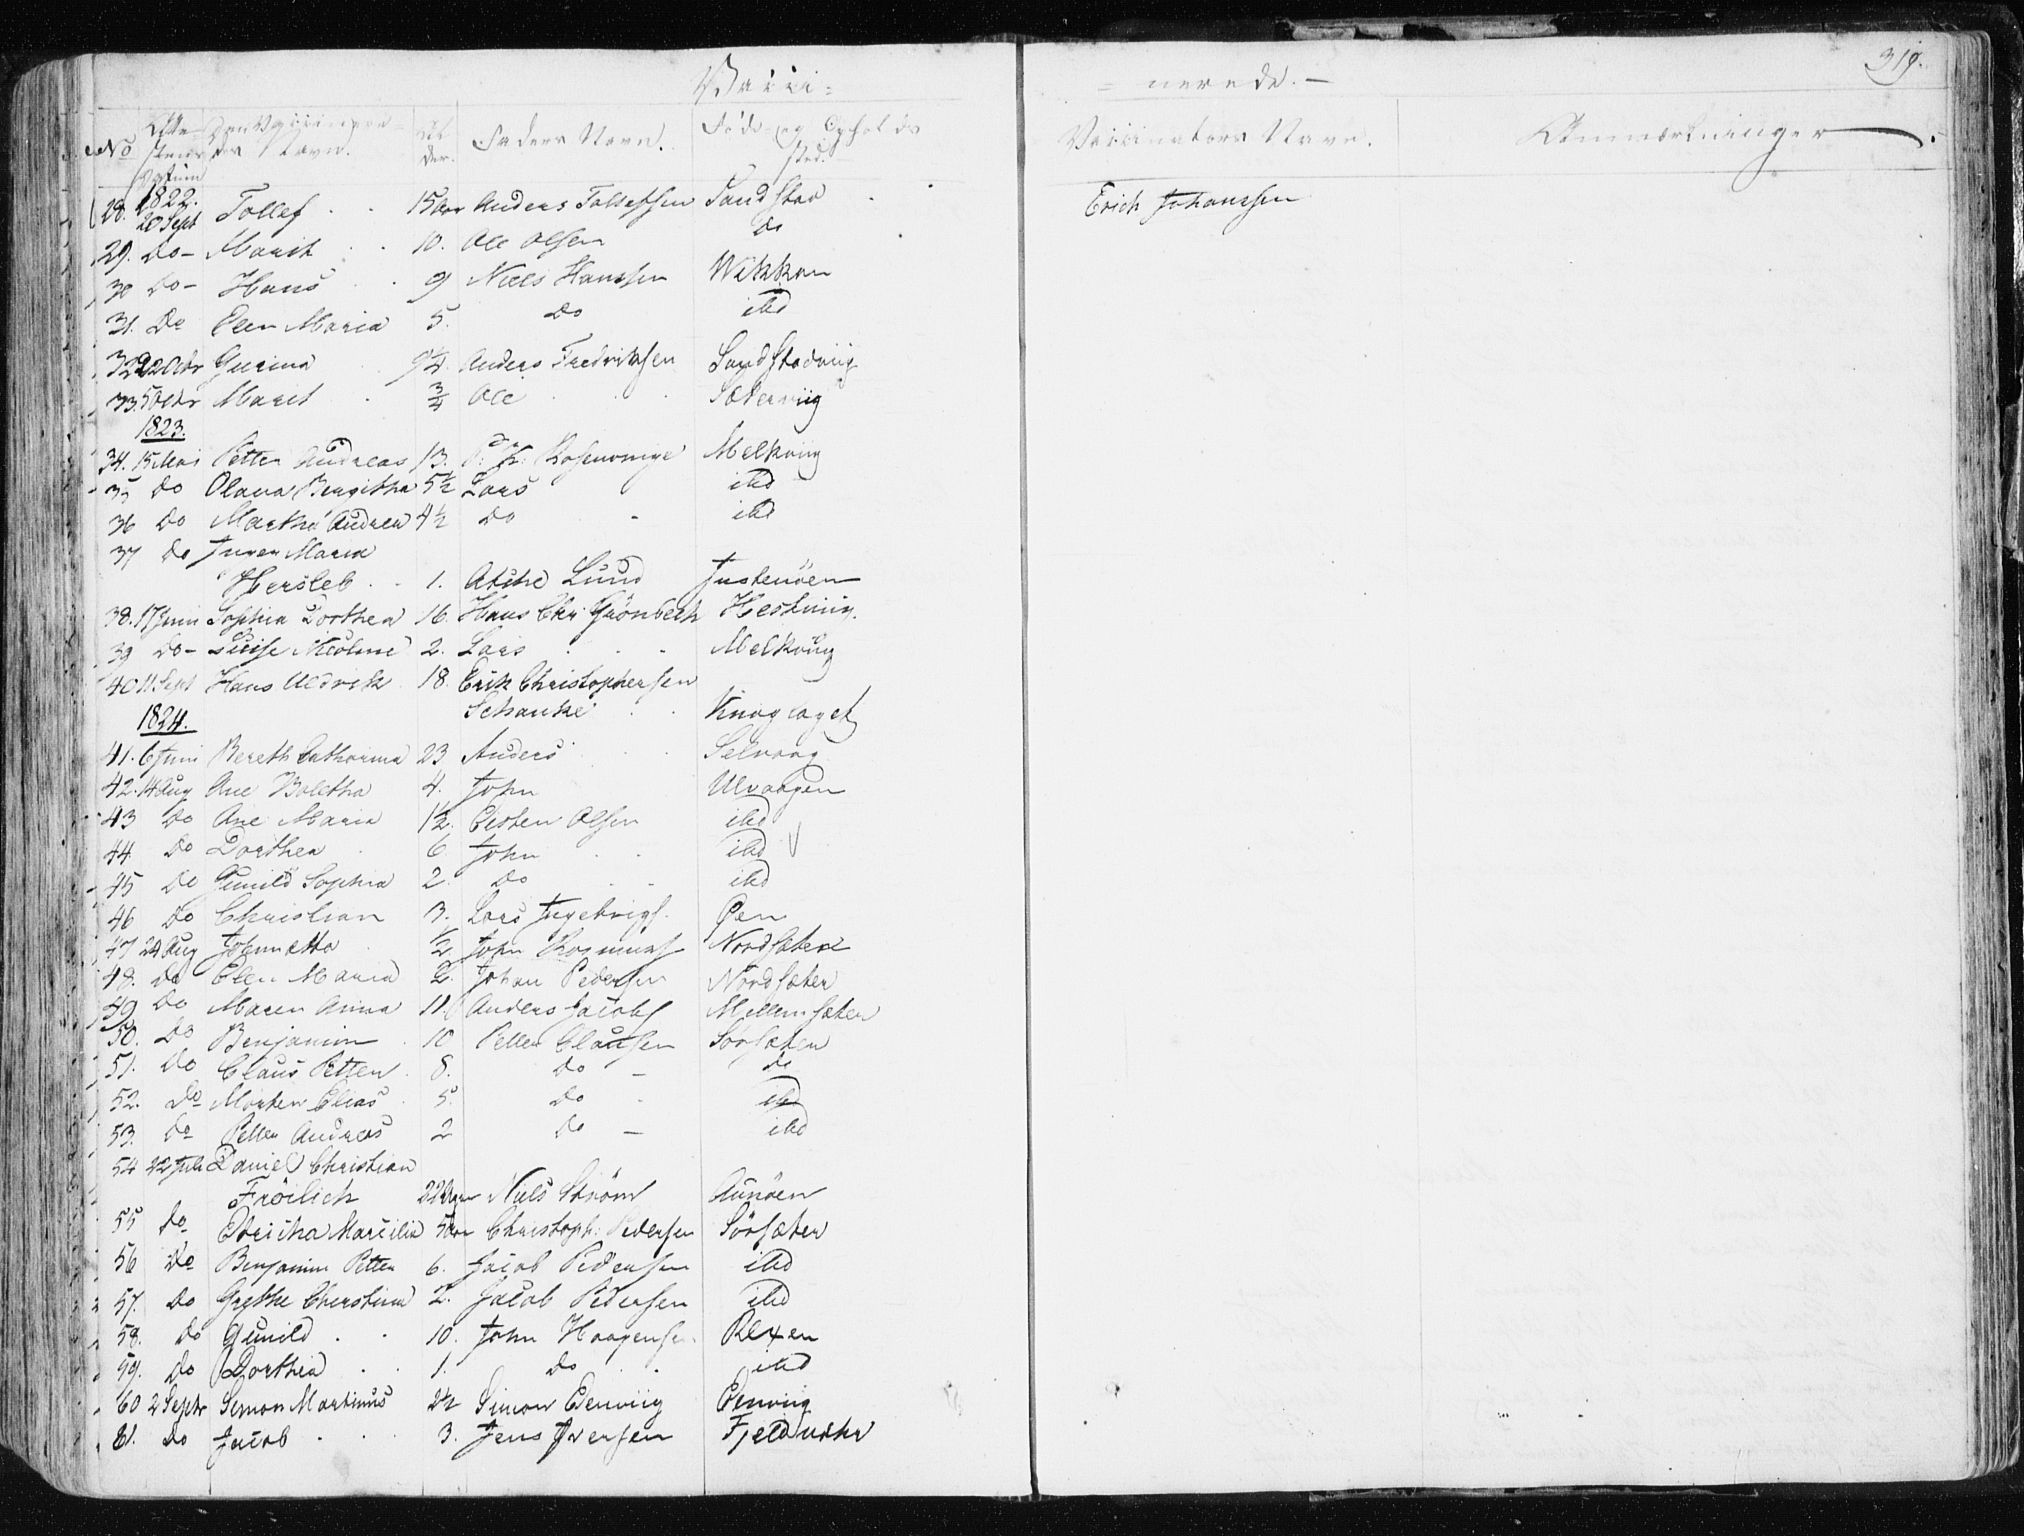 319.
Vacci=
= nerede. —
No Atte- Den Vaccinere- Al Faders Navn. Føde- og Opholds Vaccinators Navn. Anmærkninger
stens des Navn. der. sted.
Datum
1822.
28. 20 Sept Tollef 15 Aar Anders Tollefsen Sandstad Erich Johanssen
29. Do- Marit 10. Ole Olsen do
30 Do- Hans 9 Niels Hanssen Wikkan
31. Do Elen Maria 5. Do ibd
32 22 Octr Gurina 9 1/4. Anders Fredriksen Sandstadviig
33. 5 Octr Maret 3/4 Ole Sæterviig
1823.
34. 15 Mai Petter Andreas 13. P. K. Rosenvinge Melkviig
35 Do Olava Bergitha 5½ Lars ibd
36 Do Marthe Andrea 4½ Do - ibd
37 Do Inger Maria
Hersleb 1. Atche Lund Justenöen
38. 17 Juni Sophia Dorthea 16. Hans Chr: Grönbech Hestviig.
39 Do- Luise Nicoline 2. Lars Melkviig
40 11 Sept Hans Uldrik 18. Erik Christophersen
Schanke Knaglaget
1824.
41. 6 Juni Bereth Catharina 23 Anders Selvaag
42. 14 Aug Ane Boletha 4. John Ulvaagen
43 Do Ane Maria 1½. Elsten Olsen ibd
44 Do Dorthea 6 John ibd
45 Do Gunild Sophia 2. Do ibd
46 Do Christian 3. Lars Ingebrigs. Öen
47 24 Aug Johnetta ½ John Rasmuss Nordsæter
48. Do Elen Maria 2. Johan Pedersen Nordsæter
49 Do Maren Anna 11. Anders Jacobs Mellemsæter
50. Do Benjamin 10 Petter Clausen Sörsæter
51. Do Claus Petter 8. Do - do
52. Do Morten Elias 5. Do - ibd
53. Do Petter Andreas 2 Do - ibd
54 22 Juli Daniel Christian
Fröilich 22 Niels Ström Aunöen
55 Do Marcilia 5 Aar Christoph: Pedersen Sörsæter
56 Do Benjamin Petter 6. Jacob Pedersen ibd
57. Do Grethe Cherstina 2. Jacob Pedersen ibd
58. Do Gunild 10. John Haagensen Rexen
59. Do Dorthea 1. Do ibd
60 2 Septr Simon Martinus 2½ Simon Edenviig Edenviig
61. Do Jacob 3. Jens Iversen Fjeldværk